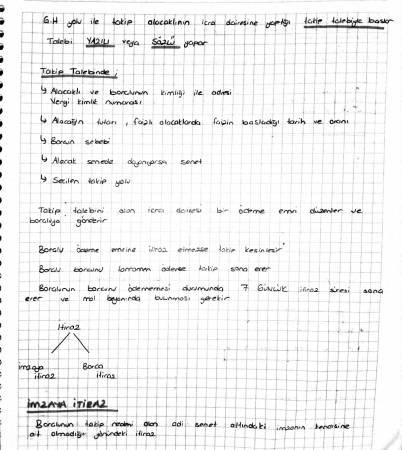 G.H yolu ile takip alacaklının icra dairesine yaptığı takip talebiyle başlar
Talebi YAZILI veya SÖZLÜ yapar
Takip Talebinde;
↳ Alacaklı ve borçlunun kimliği ile adresi
Vergi kimlik numarası
↳ Alacağın tutarı, faizli alacaklarda faizin başladığı tarih ve oranı
↳ Borcun sebebi
↳ Alacak senede dayanıyorsa senet
↳ Seçilen takip yolu
Takip talebini alan icra dairesi bir ödeme emri düzenler ve
borçluya gönderir
Borçlu ödeme emrine itiraz etmezse takip kesinleşir
Borçlu borcunu tamamen öderse takip sona erer
Borçlunun borcunu ödememesi durumunda 7 GÜNLÜK itiraz süresi sona
erer ve mal beyanında bulunması gerekir
İtiraz
imzaya Borca
itiraz itiraz
İMZAYA İTİRAZ
Borçlunun takip nedeni olan adi senet altındaki imzanın kendisine
ait olmadığı yönündeki itiraz